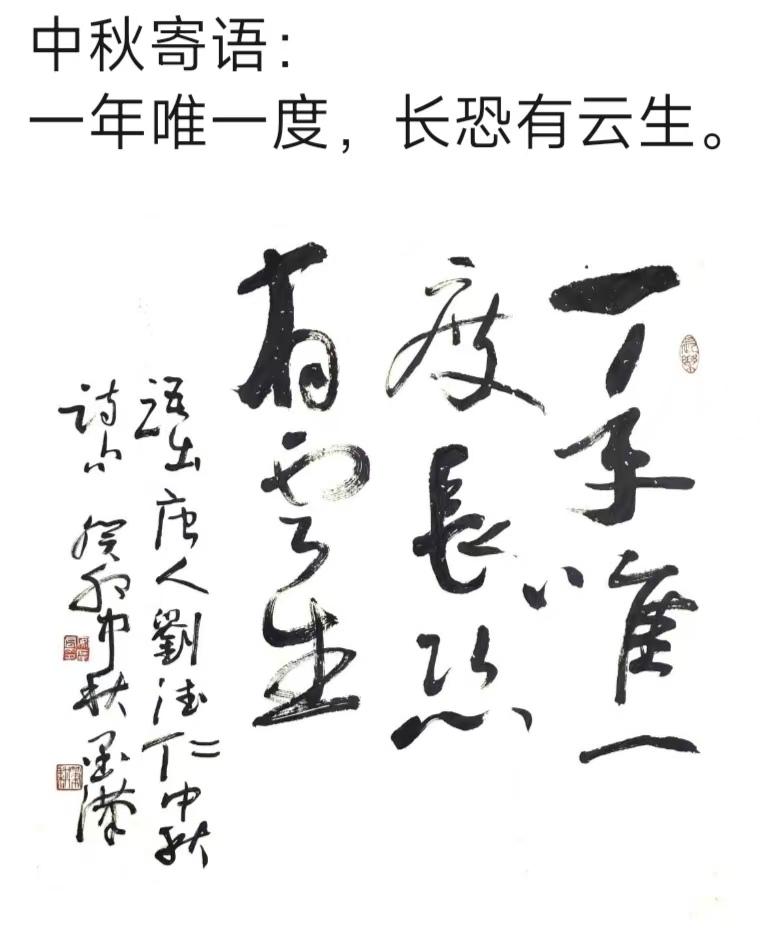 中秋寄语：
一年唯一度，长恐有云生。
一年唯一
度長恐
有雲生
语出唐人劉德仁中秋
詩句 癸卯中秋墨漢